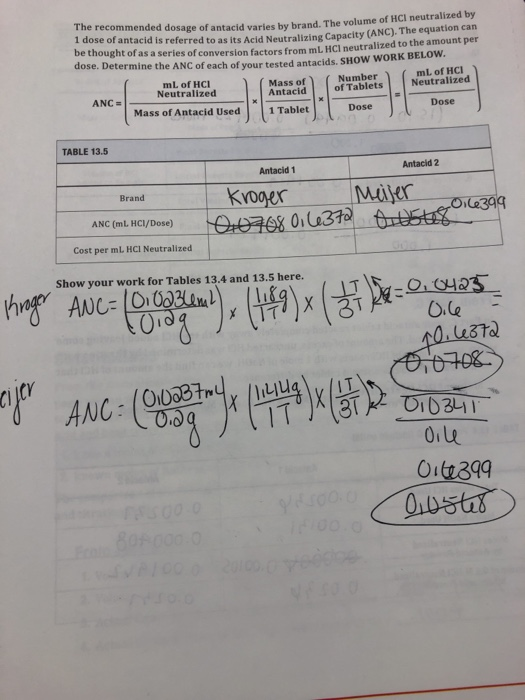 The recommended dosage of antacid varies by brand. The volume of HCl neutralized by
1 dose of antacid is referred to as its Acid Neutralizing Capacity (ANC). The equation can
be thought of as a series of conversion factors from mL HCl neutralized to the amount per
dose. Determine the ANC of each of your tested antacids. SHOW WORK BELOW.
ANC = (mL of HCl Neutralized / Mass of Antacid Used) × (Mass of Antacid / 1 Tablet) × (Number of Tablets / Dose) = (mL of HCl Neutralized / Dose)
TABLE 13.5
Antacid 1 Antacid 2
Brand Kroger Meijer
ANC (mL HCl/Dose) 0.0708 0.6372 0.0568 0.6399
Cost per mL HCl Neutralized
Show your work for Tables 13.4 and 13.5 here.
Kroger ANC = (0.0236ml / 0.2g) × (1.8g / 1T) × (1T / 3T) = 0.0425 / 0.6 =
0.6372
0.0708
eijer ANC = (0.0237ml / 0.2g) × (1.44g / 1T) × (1T / 3T) = 0.0341 / 0.6
0.6399
0.0568